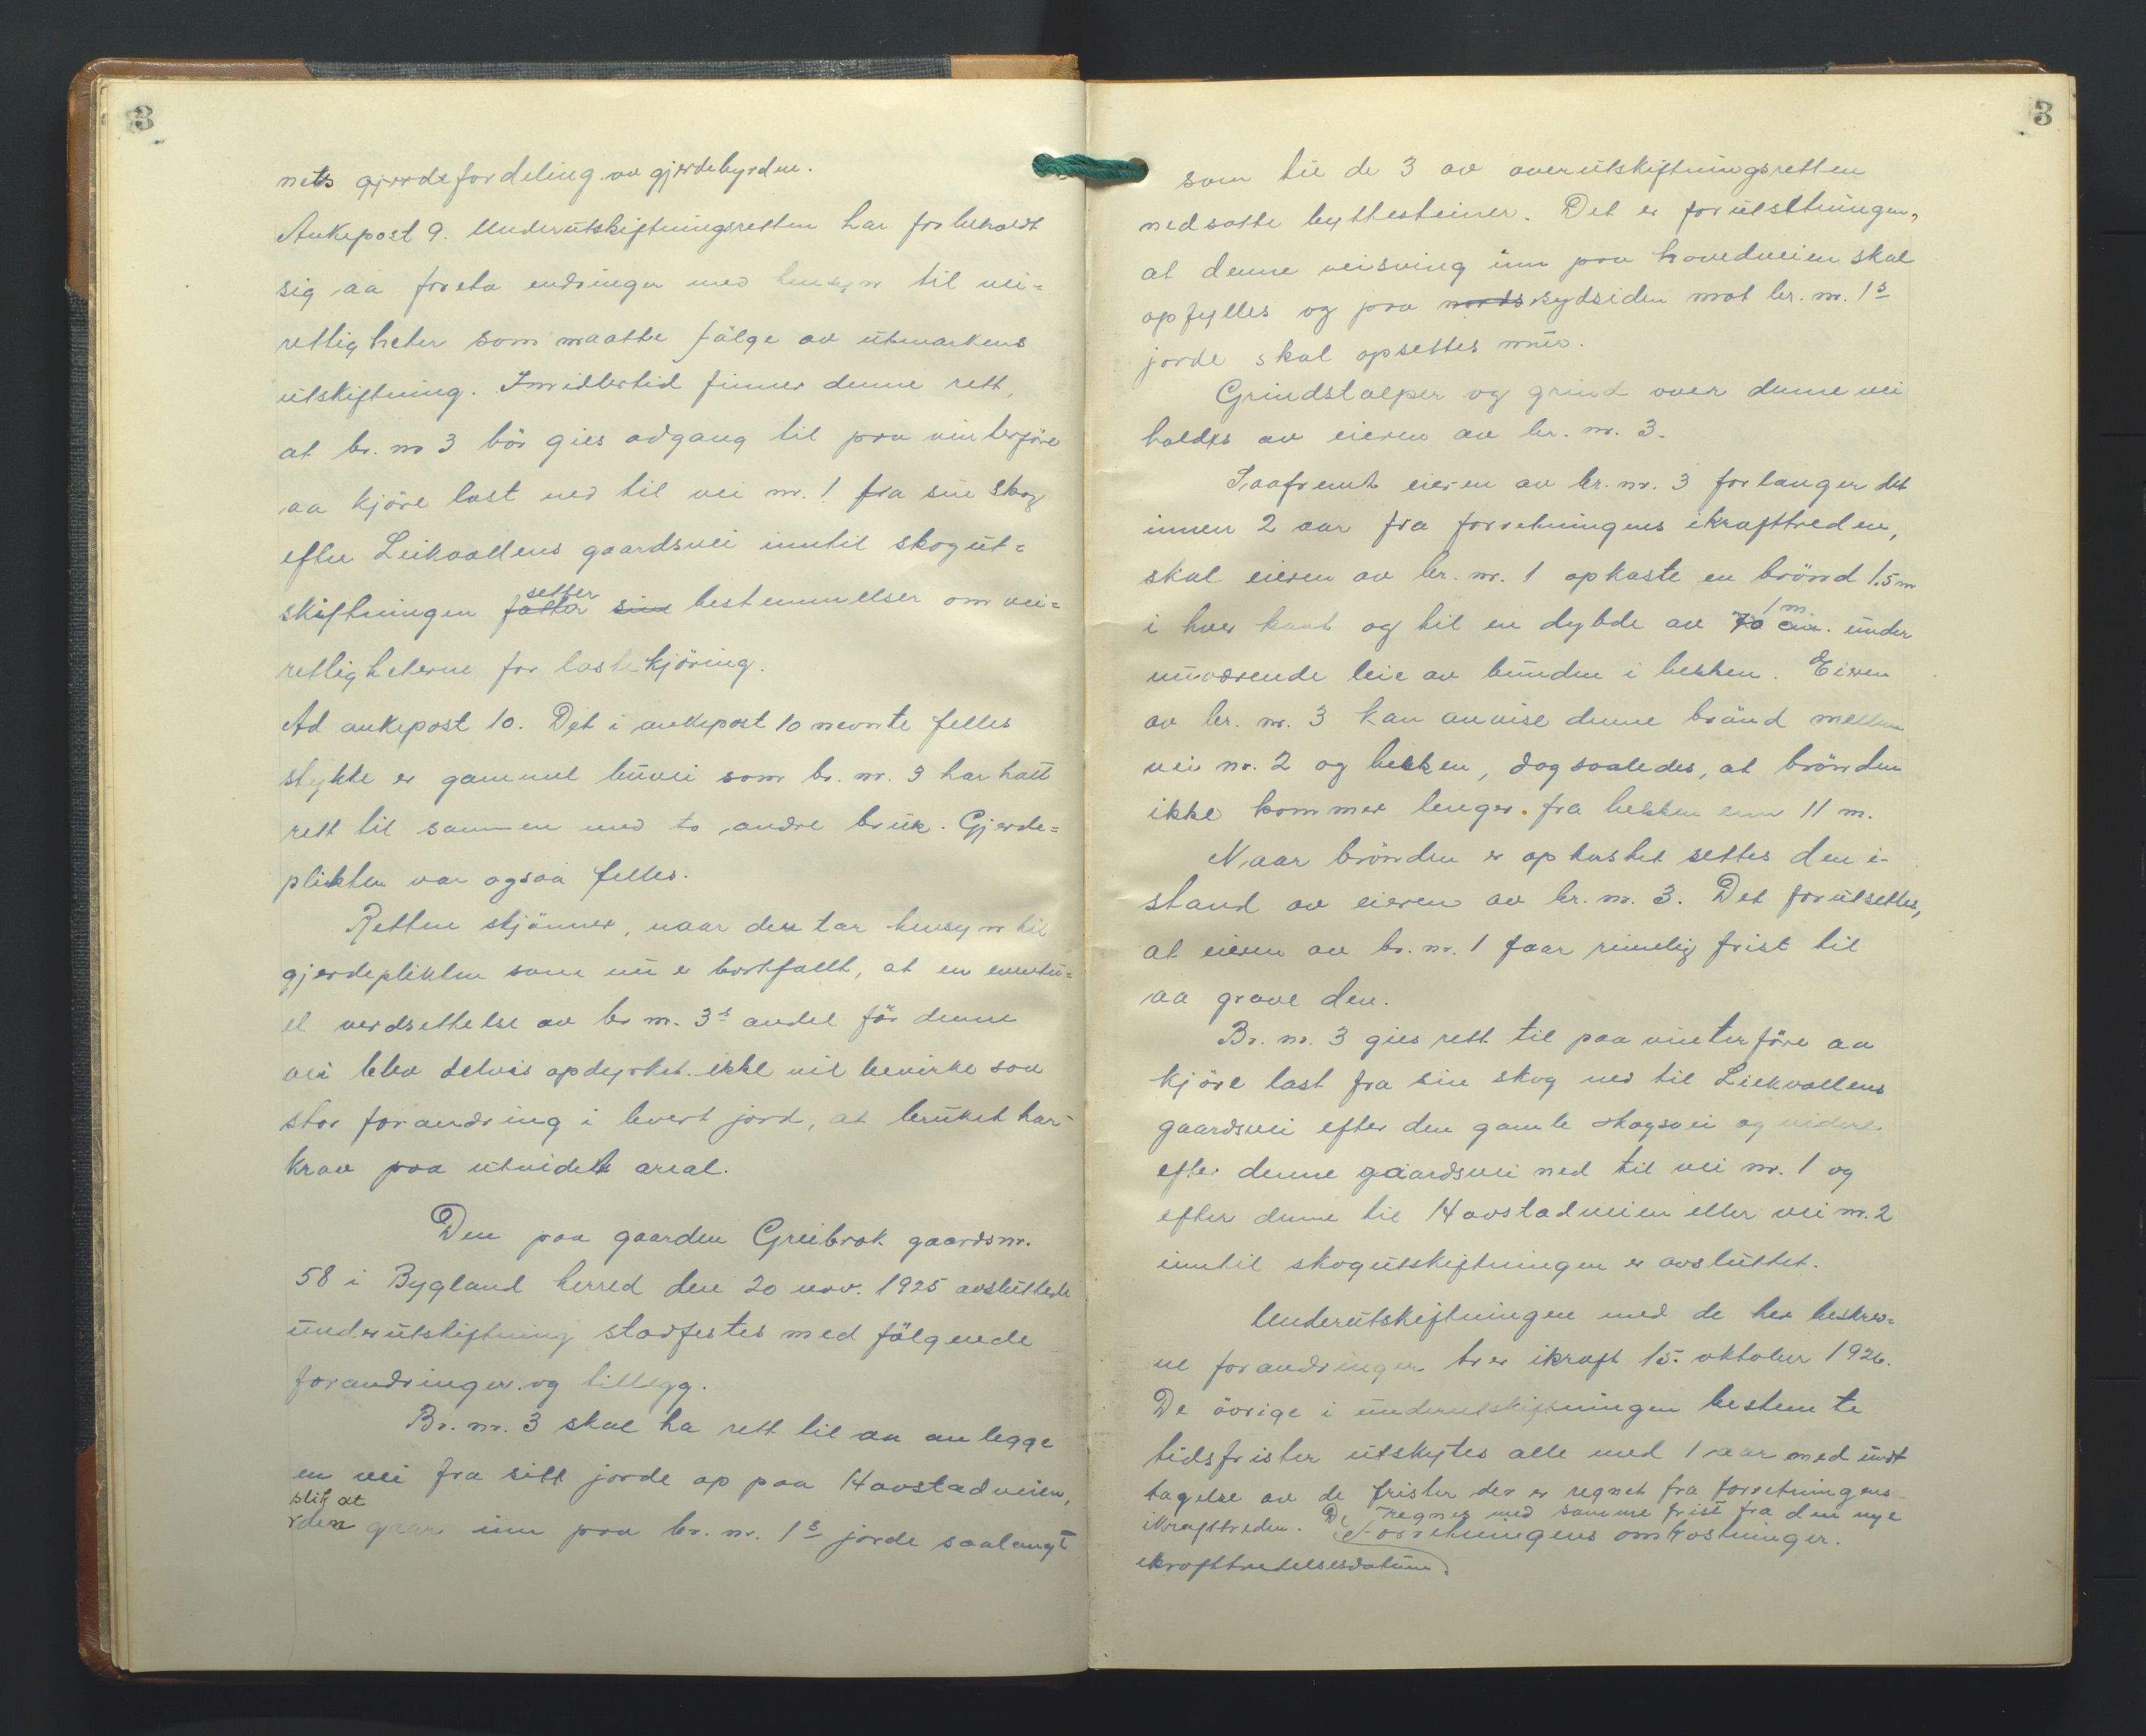 3
nets gjerdefordeling av gjerdebyrden.
Ankepost 9. Underutskiftningsretten har forbeholdt
sig aa foreta endringer med hensyn til vei=
rettigheter som maatte fölge av utmarkens
utskiftning. Imidlertid finner denne rett,
at br. nr 3 bör gies adgang til paa vinterföre
aa kjöre last ned til vei nr. 1 fra sin skog
efter Leikvollens gaardsvei inntil skogut=
setter
skiftningen fatter sine bestemmelser om vei=
rettigheterne for lastekjöring.
Ad ankepost 10. Det i ankepost 10 nevnte felles
stykke er gammel buvei som br. nr. 3 har hatt
rett til sammen med to andre bruk. Gjerde=
plikten var ogsaa felles.
Retten skjönner, naar den tar hensyn til
gjerdeplikten som nu er bortfallt, at en eventu=
el verdsettelse av br nr. 3s andel för denne
vei blev delvis opdyrket ikke vil bevirke saa
stor forandring i levert jord, at bruket har
krav paa utvidet areal.
Den paa gaarden Greibrok gaardsnr.
58 i Bygland herred den 20 nov. 1925 avsluttede
underutskiftning stadfestes med fölgende
forandringer og tillegg.
Br. nr. 3 skal ha rett til aa anlegge
en vei fra sitt jorde op paa Havstadveien,
slik at
den gaar inn paa br. nr. 1s jorde saalangt
3
som til de 3 av overutskiftningsretten
nedsatte byttesteiner. Det er forutsetningen,
at denne veisving inn paa hovedveien skal
opfylles og paa nords sydsiden mot br. nr. 1s
jorde skal opsettes mur.
Grindstolper og grind over denne vei
holdes av eieren av br. nr. 3.
Saafremt eieren av br. nr. 3 forlanger det
innen 2 aar fra forretningens ikrafttreden,
skal eieren av br. nr. 1 opkaste en brönd 1.5 m
1 m.
i hver kant og til en dybde av 70 cm. under
nuværende leie av bunden i bekken. Eieren
av br. nr. 3 kan anvise denne brönd mellem
vei nr. 2 og bekken, dog saaledes, at brönden
ikke kommer lenger fra bekken enn 11 m.
Naar brönden er opkastet settes den i-
stand av eieren av br. nr. 3. Det forutsettes,
at eieren av br. nr. 1 faar rimelig frist til
aa grave den.
Br. nr. 3 gies rett til paa vinterföre aa
kjöre last fra sin skog ned til Liekvollens
gaardsvei efter den gamle skogsvei og videre
efter denne gaardsvei ned til vei nr. 1 og
efter denne til Havstadveien eller vei nr. 2
inntil skogutskiftningen er avsluttet.
Underutskiftningen med de her beskrev=
ne forandringer trer ikraft 15. oktober 1926.
De övrige i underutskiftningen bestemte
tidsfrister utskytes alle med 1 aar med und
tagelse av de frister der er regnet fra forretningens
ikrafttreden. De regnes med samme frist fra den nye
Forretningens omkostninger.
ikrafttredelsesdatum.